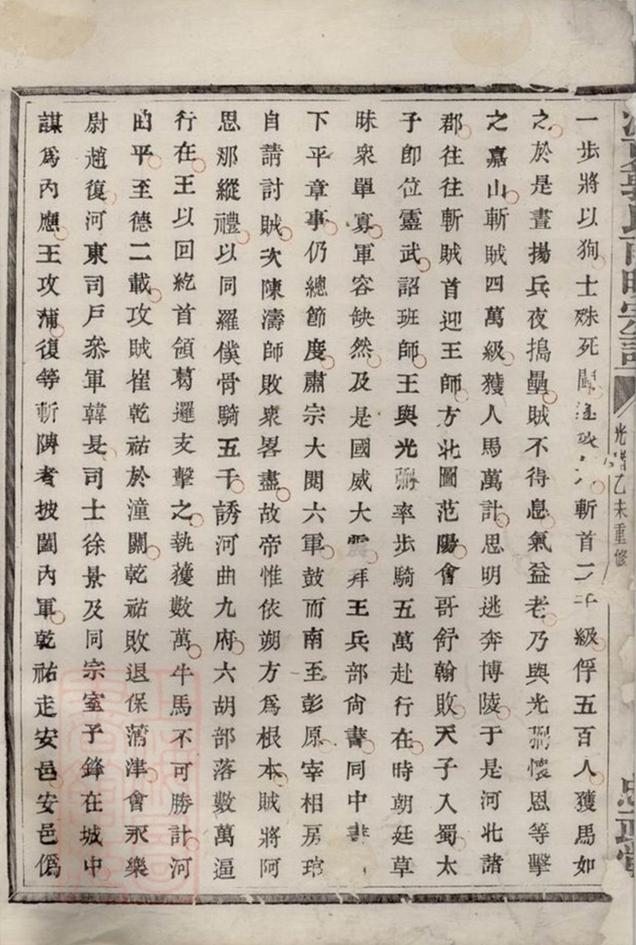 一步將以狥士殊死鬬斬首二千級俘五百人獲馬如
之於是晝揚兵夜搗壘賊不得息氣益老乃與光弼懷恩等擊
之嘉山斬賊四萬級獲人馬萬計思明逃奔博陵于是河北諸
郡往往斬賊首迎王師方北圖范陽會哥舒翰敗天子入蜀太
子卽位靈武詔班師王與光弼率步騎五萬赴行在時朝廷草
昧衆單寡軍容缺然及是國威大震拜王兵部尙書同中書
下平章事仍總節度肅宗大閱六軍鼓而南至彭原宰相房琯
自請討賊次陳濤師敗衆畧盡故帝惟依朔方爲根本賊將阿
思那縱禮以同羅僕骨騎五千誘河曲九府六胡部落數萬逼
行在王以回紇首領葛邏支擊之執獲數萬牛馬不可勝計河
曲平至德二載攻賊崔乾祐於潼關乾祐敗退保蒲津會永樂
尉趙復河東司戶叅軍韓旻司士徐景及同宗室子鋒在城中
謀爲內應王攻蒲復等斬陴者披闔內軍乾祐走安邑安邑僞
光緖乙未重修